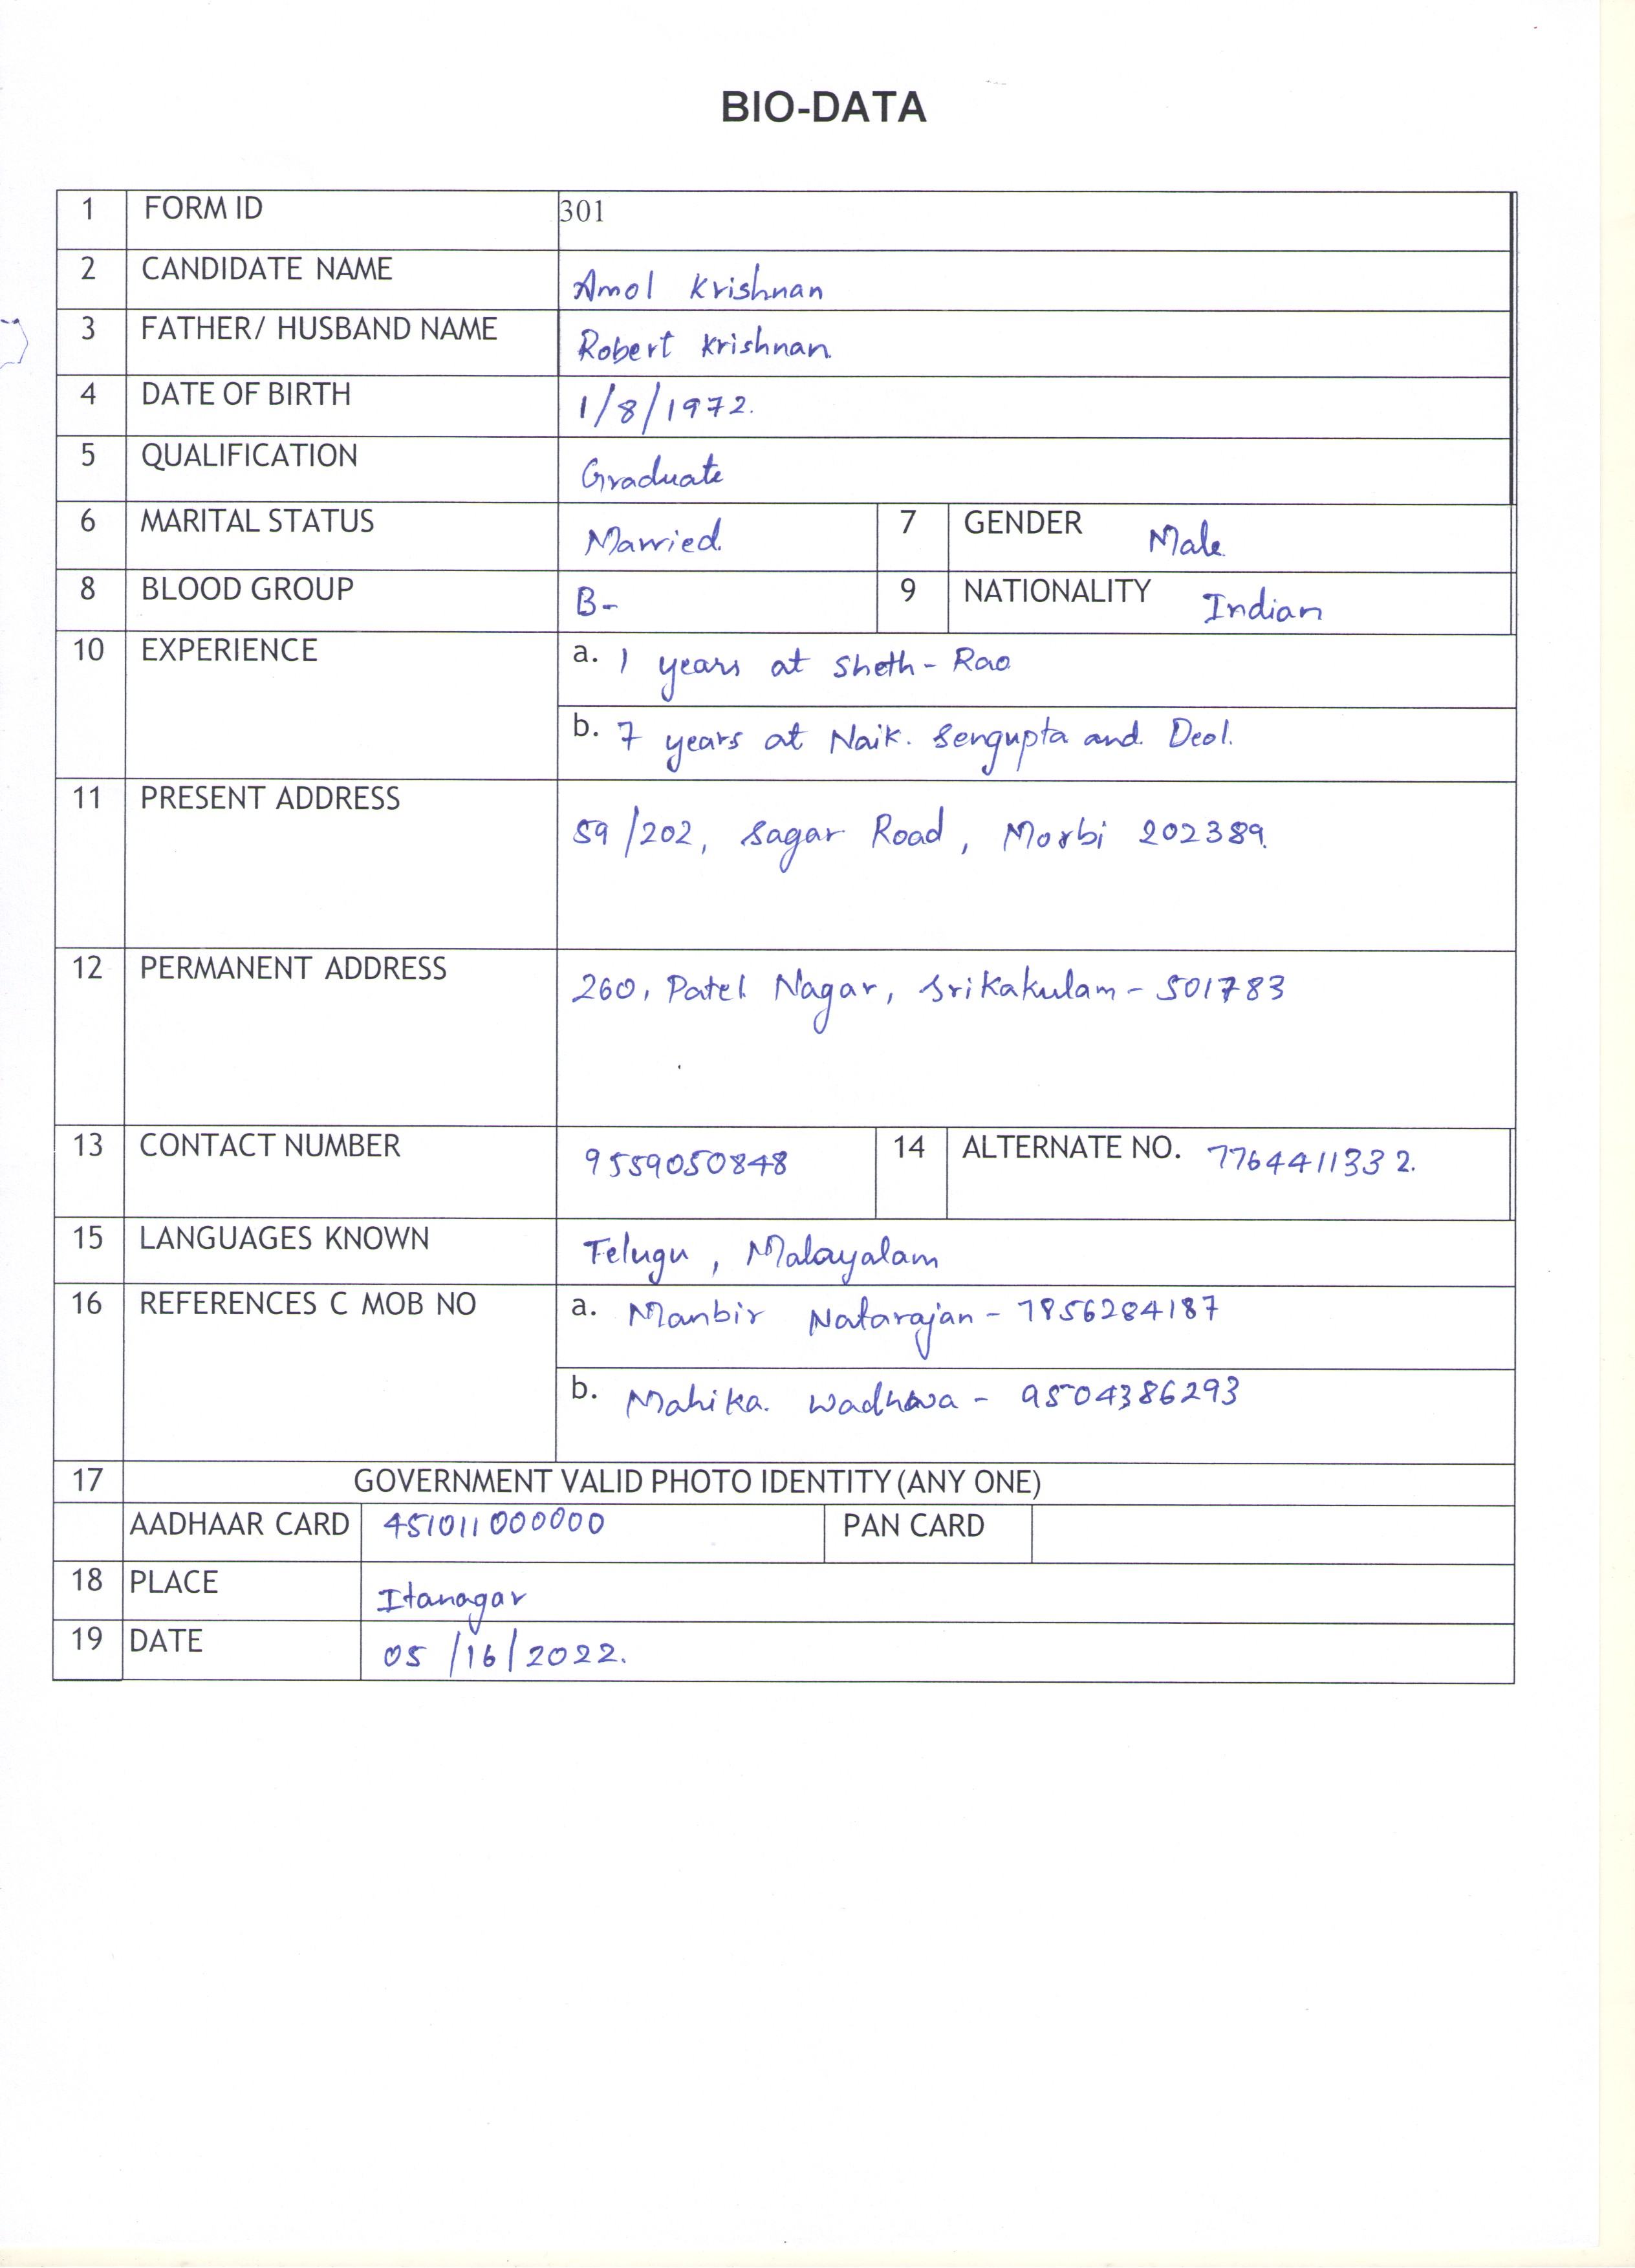 BIO-DATA
1 FORM ID 301
2 CANDIDATE NAME Amol Krishnan
3 FATHER/ HUSBAND NAME Robert Krishnan
4 DATE OF BIRTH 1/8/1972.
5 QUALIFICATION Graduate
6 MARITAL STATUS Married 7 GENDER Male
8 BLOOD GROUP B- 9 NATIONALITY Indian
10 EXPERIENCE a. 1 years at Sheth-Rao
b. 7 years at Naik. Sengupta and Deol.
11 PRESENT ADDRESS 59/202, Sagar Road, Morbi 202389.
12 PERMANENT ADDRESS 260, Patel Nagar, Srikakulam - 501783
13 CONTACT NUMBER 9559050848 14 ALTERNATE NO. 7764411332.
15 LANGUAGES KNOWN Telugu, Malayalam
16 REFERENCES C MOB NO a. Manbir Natarajan - 7856284187
b. Mahika. Wadhwa - 9504386293
17 GOVERNMENT VALID PHOTO IDENTITY (ANY ONE)
AADHAAR CARD 451011000000 PAN CARD
18 PLACE Itanagar
19 DATE 05/16/2022.